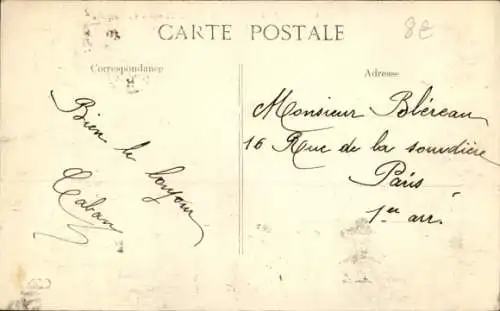 CARTE POSTALE
8E
Correspondance
Adresse
Bien le bonjour
Monsieur Bléreau
16 Rue de la sourdière
Paris
1er arr.